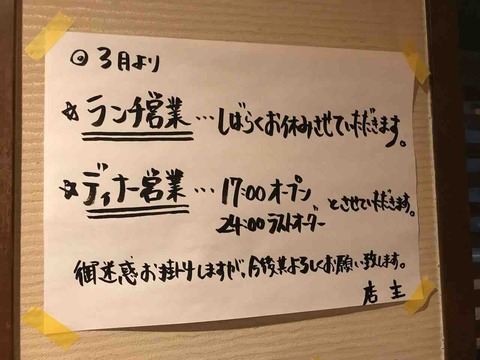 ◎3月より
☆ランチ営業…しばらくお休みさせていただきます。
☆ディナー営業…17:00オープン
24:00ラストオーダー
とさせていただきます。
御迷惑お掛けしますが、今後共よろしくお願い致します。
店主